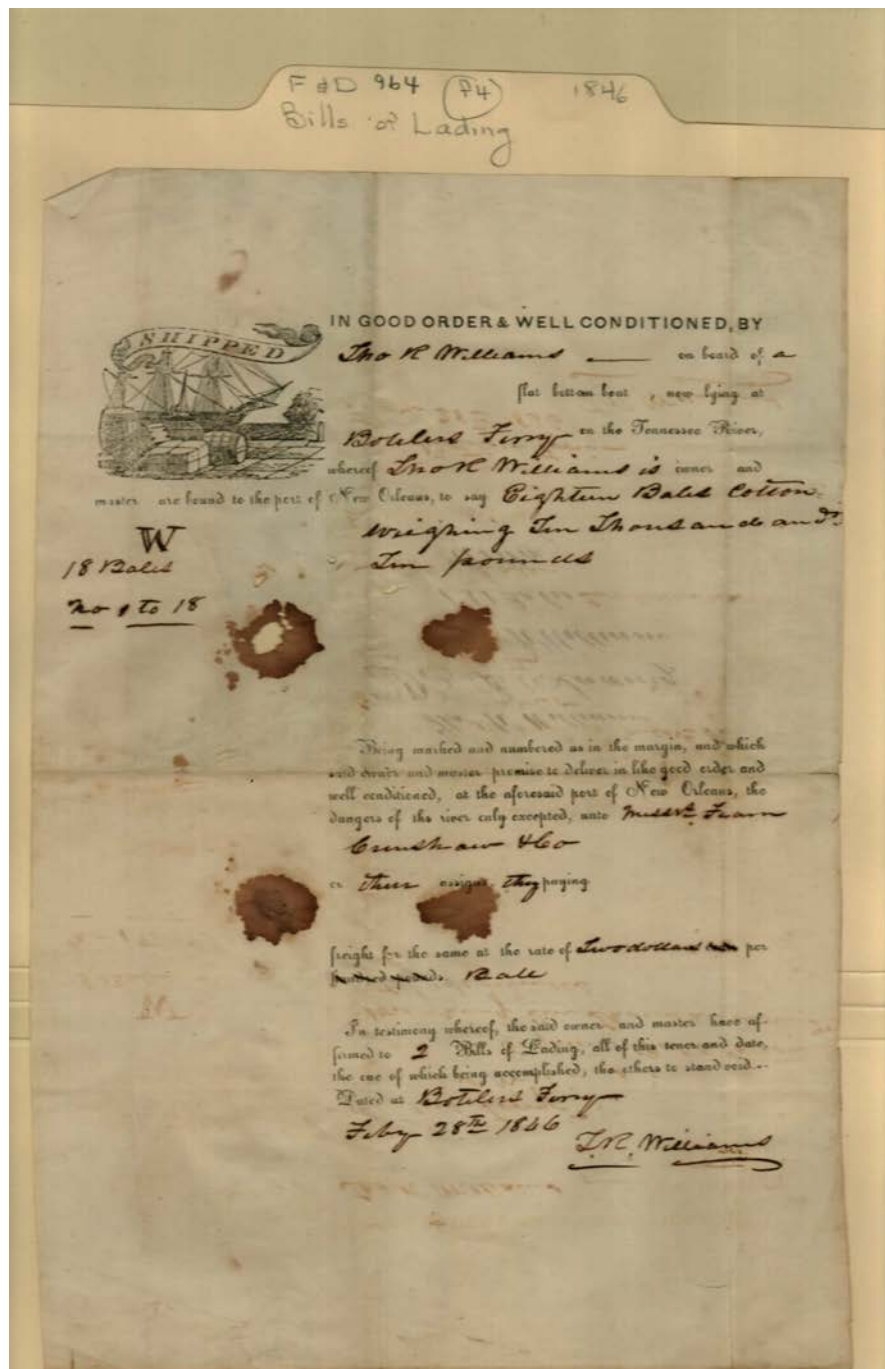 F & D 964 P4 1846
Bills of Lading
SHIPPED
IN GOOD ORDER & WELL CONDITIONED, BY
Tho R Williams on board of a
flat bottom boat, now lying at
Botelers Ferry on the Tennessee River,
whereof Tho R Williams is owner and
master are bound to the port of New Orleans, to say Eighteen Bales Cotton
weighing Ten Thousand and
Ten pounds
W
18 Bales
No 1 to 18
Being marked and numbered as in the margin, and which
said owner and master promise to deliver in like good order and
well conditioned, at the aforesaid port of New Orleans, the
dangers of the river only excepted, unto Messrs. Fearn
Crenshaw & Co
or their assigns they paying
freight for the same at the rate of Two dollars per
hundred pounds Bale
In testimony whereof, the said owner and master have af-
firmed to 2 Bills of Lading, all of this tenor and date,
the one of which being accomplished, the others to stand void.
Dated at Botelers Ferry
Feby 28th 1846
T.R. Williams